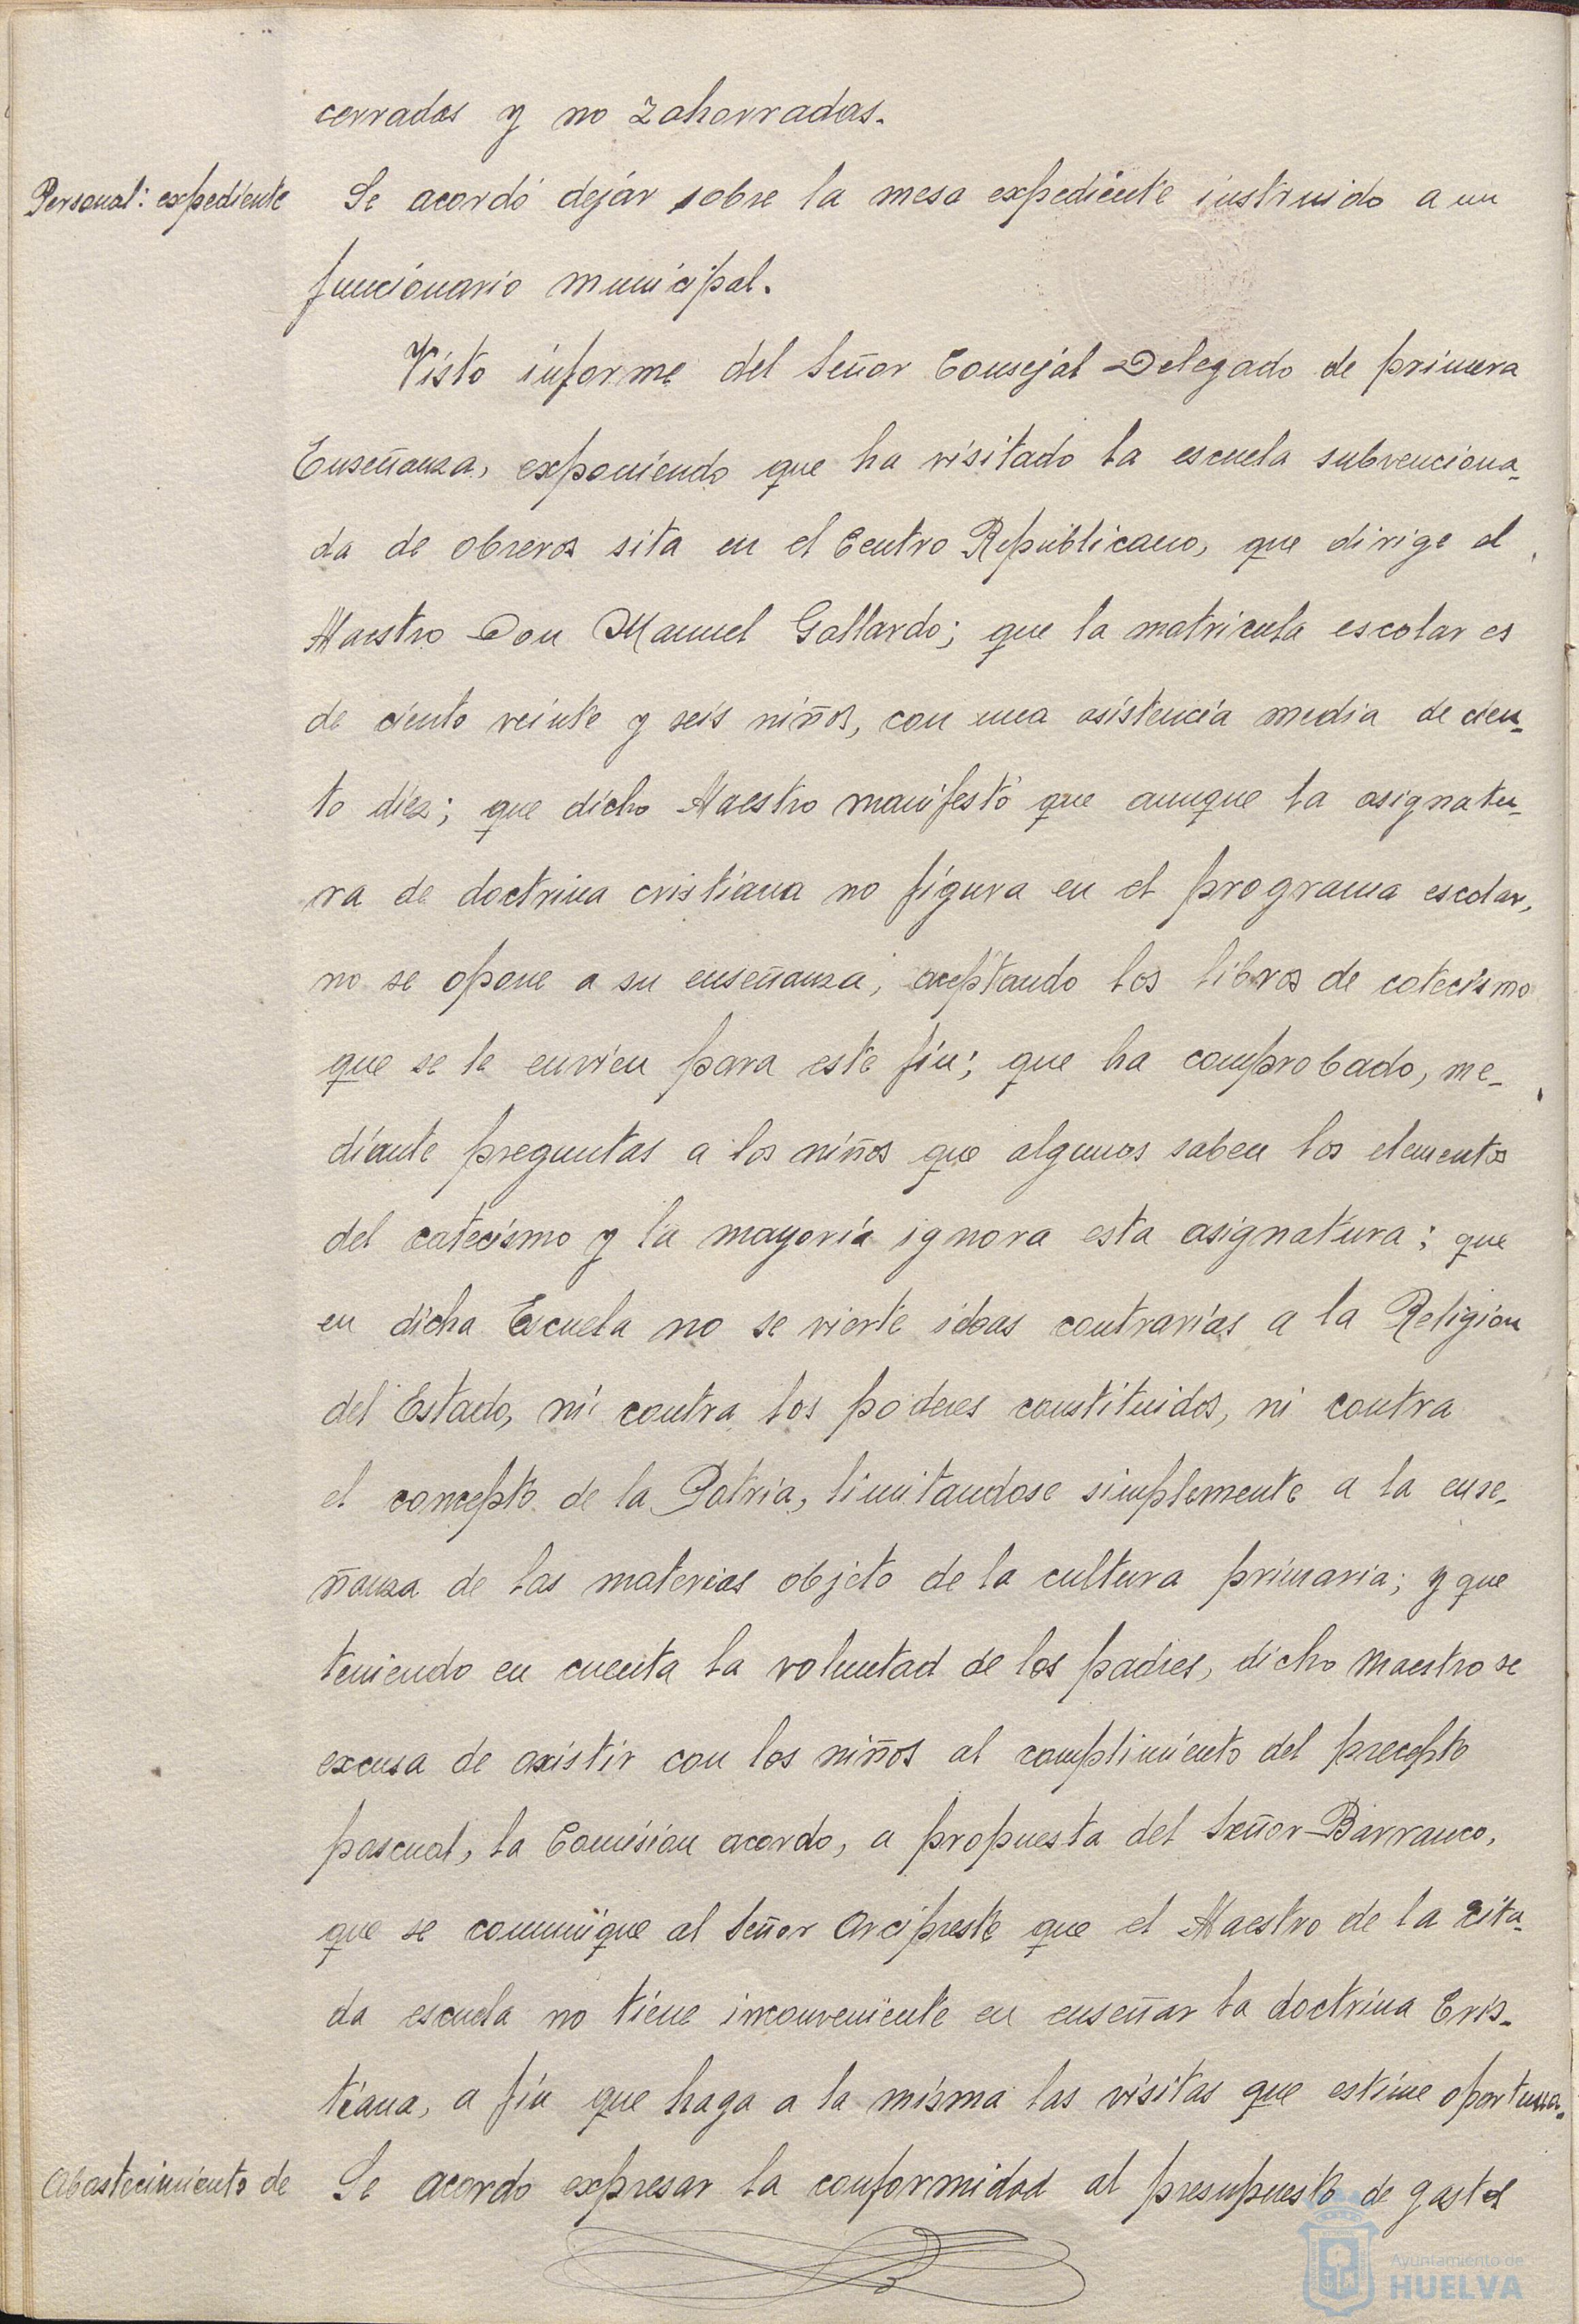 cerradas y no zahorradas.
Personal: expediente Se acordó dejar sobre la mesa expediente instruido a un
funcionario municipal.
Visto informe del Señor Consejal Delegado de primera
Enseñanza, exponiendo que ha visitado la escuela subvenciona-
da de obreros sita en el Centro Republicano, que dirige el
Maestro Don Manuel Gallardo; que la matricula escolar es
de ciento veinte y seis niños, con una asistencia media de cien-
to diez; que dicho Maestro manifestó que aunque la asignatu-
ra de doctrina cristiana no figura en el programa escolar,
no se opone a su enseñanza, aceptando los libros de catecismo
que se le envien para este fin; que ha comprobado, me-
diante preguntas a los niños que algunos saben los elementos
del catecismo y la mayoría ignora esta asignatura; que
en dicha Escuela no se vierte ideas contrarias a la Religion
del Estado, ni contra los poderes constituidos, ni contra
el concepto de la Patria, limitandose simplemente a la ense-
ñanza de las materias objeto de la cultura primaria; y que
teniendo en cuenta la voluntad de los padres, dicho maestro se
excusa de asistir con los niños al complimiento del precepto
pascual, la Comision acordo, a propuesta del Señor Barranco,
que se comunique al Señor Arcipreste que el Maestro de la cita-
da escuela no tiene inconveniente en enseñar la doctrina Cris-
tiana, a fin que haga a la misma las visitas que estime oportuna.
Abastecimiento de Se acordo expresar la conformidad al presupuesto de gastos
Ayuntamiento de
HUELVA